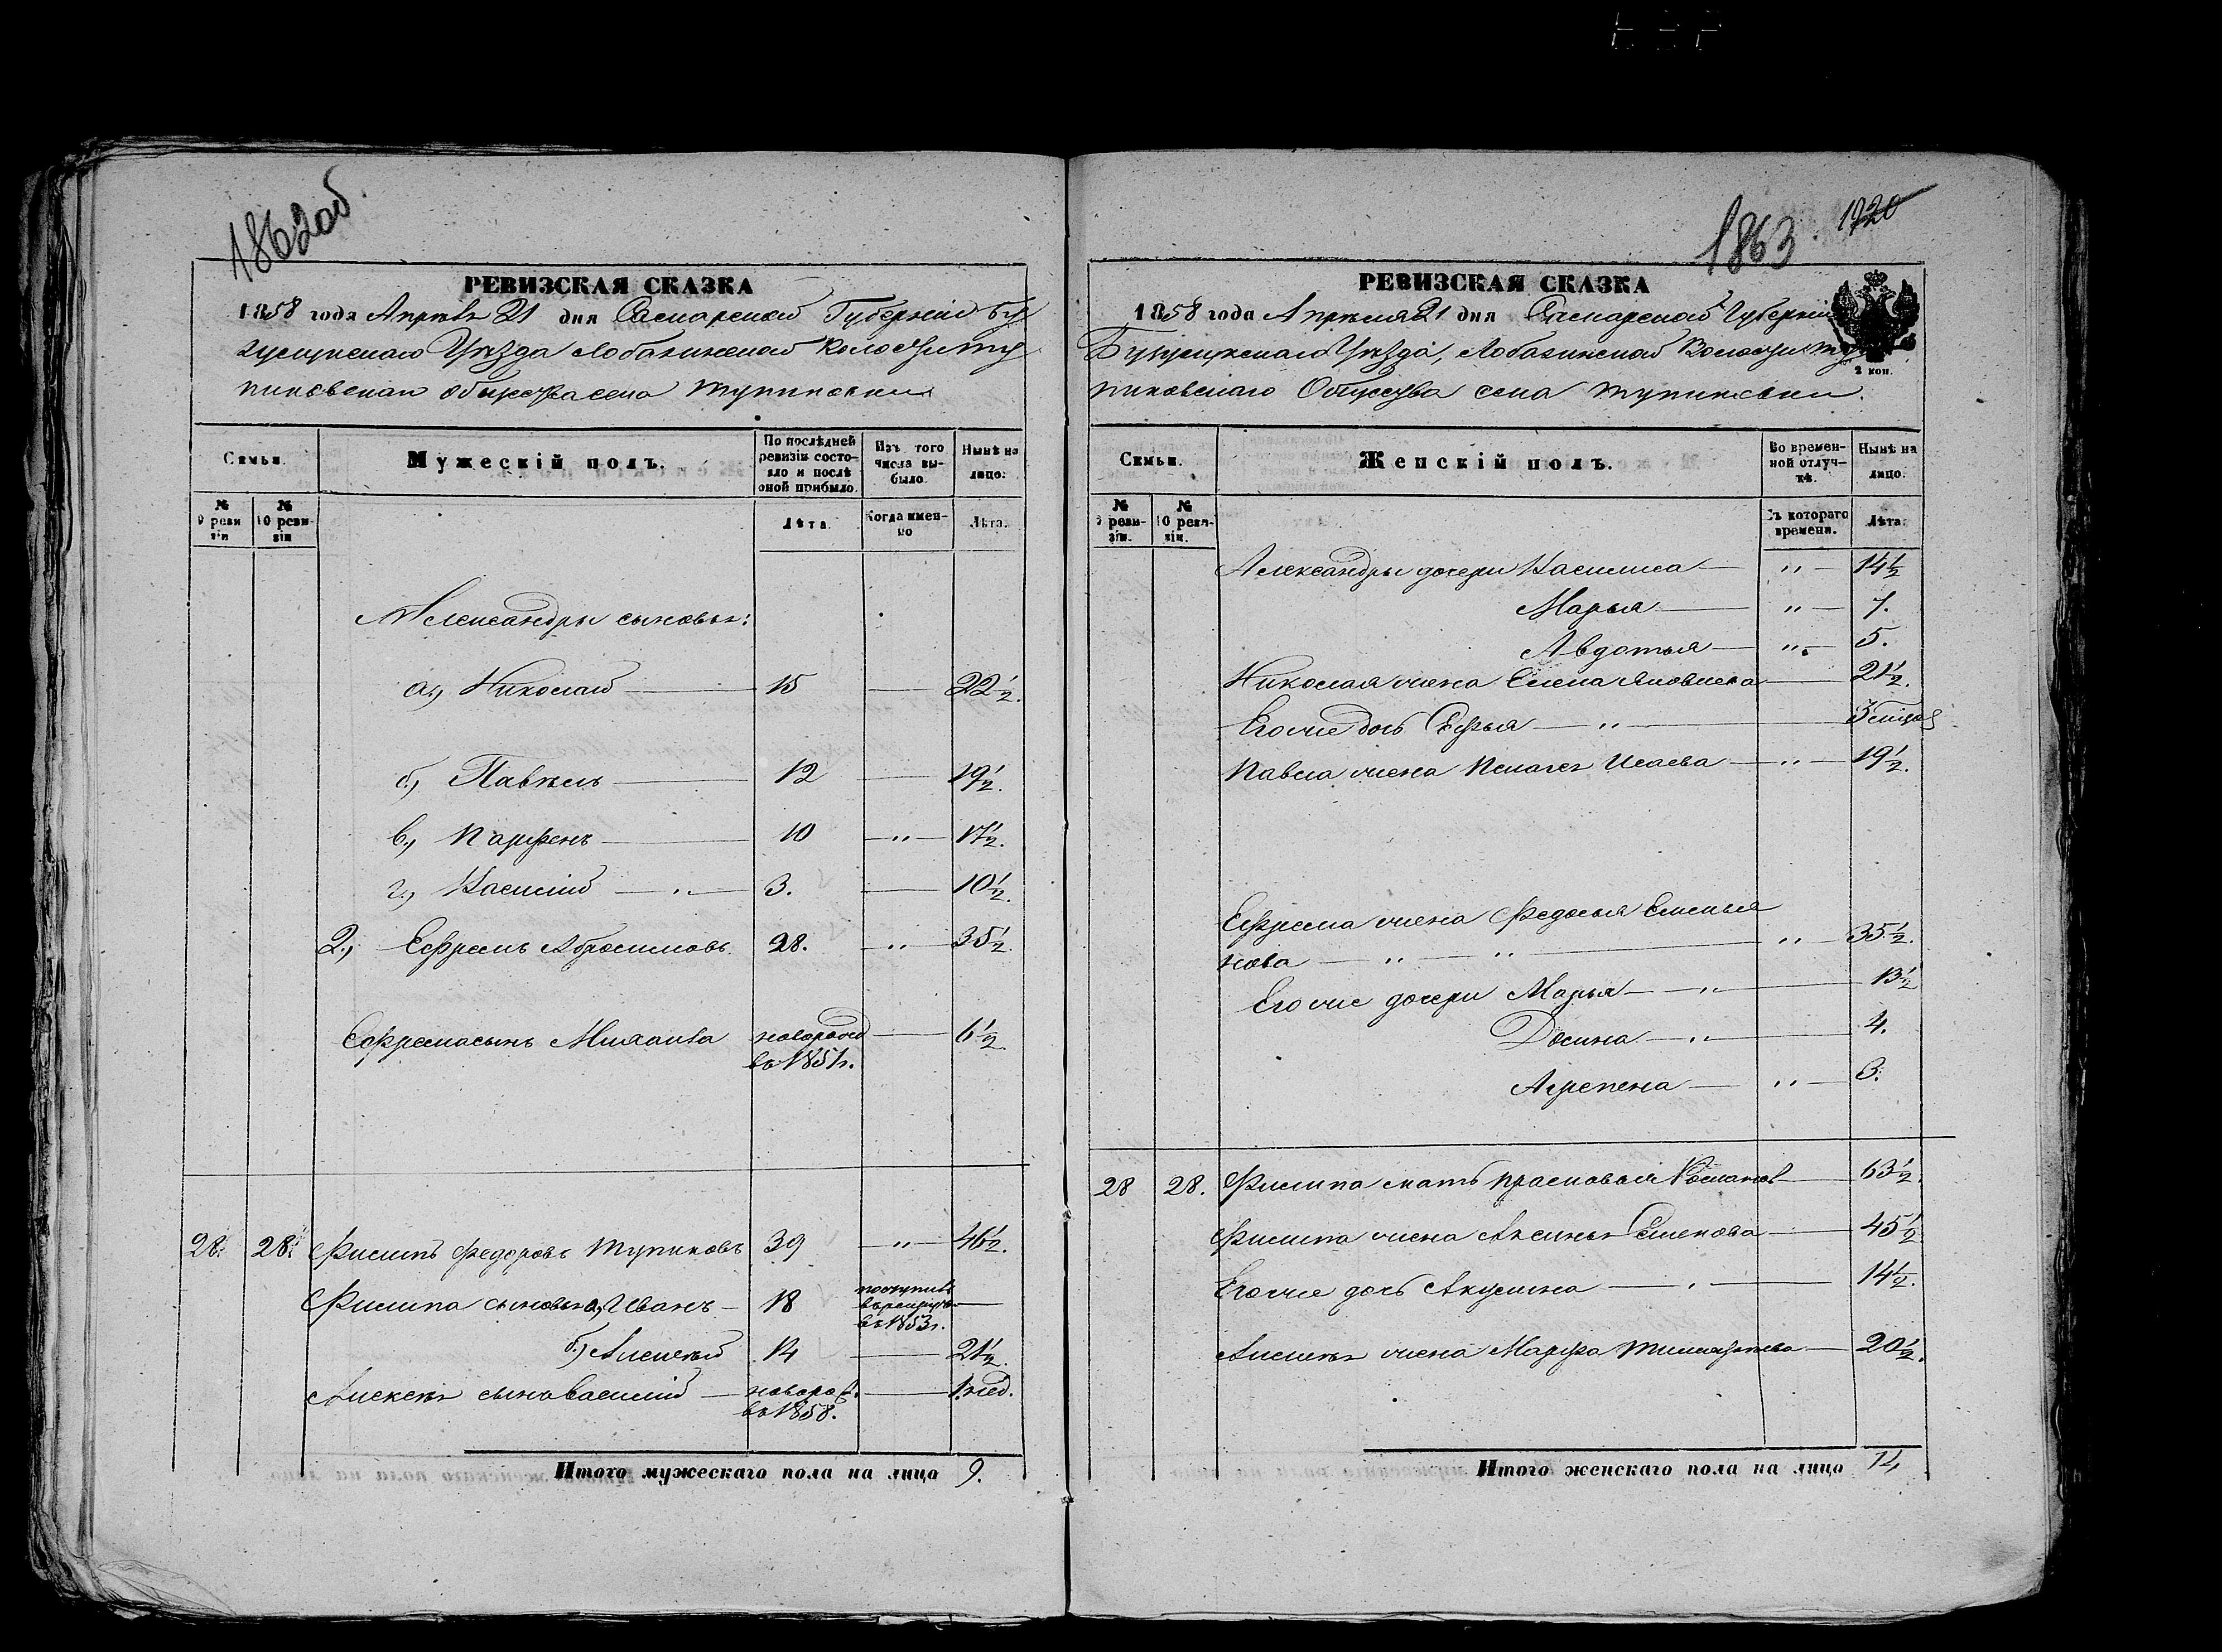 1862об
РЕВИЗСКАЯ СКАЗКА
1858 года Апреля 21 дня Самарской Губернии Бу
гуруслускаго Уѣзда Лобазинской Волости Ту
пиковскаго общества села Тупиковки
Семьи.
Мужескій полъ.
По послѣдней ревизіи состояло и послѣ оной прибыло.
Изъ того числа выбыло.
Нынѣ на лицо.
№ 9 ревизіи
№ 10 ревизіи
Лѣта.
Когда именно
Лѣта.
Александры сыновья:
а., Николай 15 22½.
б., Павѣлъ 12 19½.
в., Парфенъ 10 " 17½.
г., Василій " 3. 10½.
2., Ефремъ Абросимовъ. 28. " 35½.
Ефрема сынъ новорожд 6½
въ 1851г.
28. 28. Филипъ Федоровъ Тупиковъ 39 " 46½.
Филипа сыновья а, Иванъ 18 поступилъ
въ рекруты
въ 1853г.
б., Алексѣй 14 21½.
Алексѣя сынъ Василий новорож. 1. нед.
въ 1858.
Итого мужескаго пола на лицо 9.
1863 1720
РЕВИЗСКАЯ СКАЗКА
1858 года Апреля 21 дня Самарской Губерніи
Уѣзда, Лобазинской Волости Ту
2 коп.
пиковскаго Общества села Тупиковки.
Семьи.
Женскій полъ.
Во временной отлучкѣ.
Нынѣ на лицо.
№ 9 ревизіи.
№ 10 ревизіи.
Съ котораго времени.
Лѣта.
Александры дочери Василиса " 14½
Марья " 7.
Авдотья " 5.
Николая жена Елена Яковлева 21½.
Его же дочь Софья " 3 мѣсяц
Павла жена Пелагея Исаева " 19½.
Ефрема жена Федосья Емелья
нова " " " 35½.
Его же дочери Марья " 13½
Домна " 4.
Агрепена " 3.
28 28. Филипа мать Прасковья Романов 63½.
Филипа жена Аксинья Семенова 45½
Его же дочь Акулина 14½.
Алексѣя жена Марфа Тимофѣева 20½.
Итого женскаго пола на лицо 14